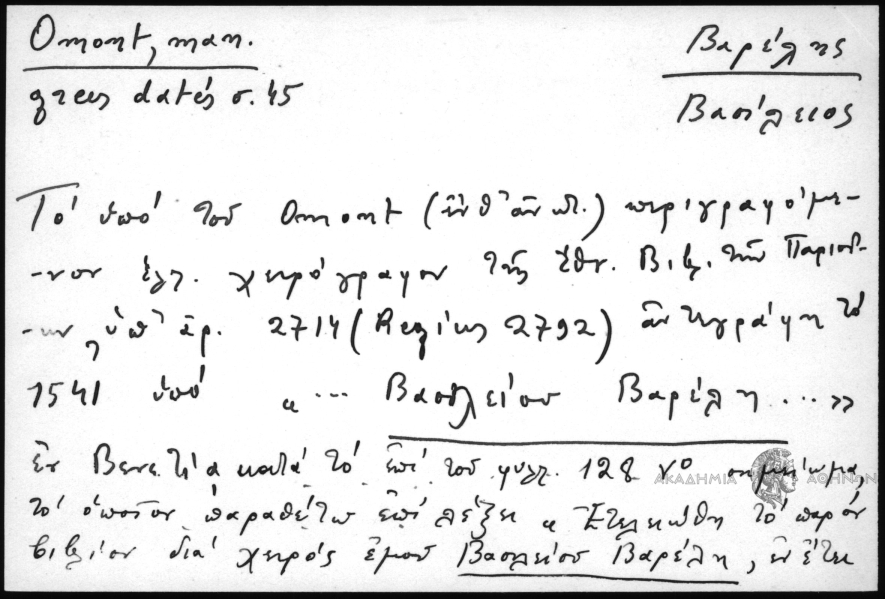 Omont, man.
grecs datés σ. 45
Βαρέλης
Βασίλειος
Τό ὑπό τοῦ Omont (ἐνθ' ἀνωτ.) περιγραφόμε-
-νον ἑλλ. χειρόγραφον τῆς Ἐθν. Βιβλ. τῶν Παρισί-
-ων, ὑπ' ἀρ. 2714 (Regius 2792) ἀντεγράφη τό
1541 ὑπό «... Βασιλείου Βαρέλη ...»
ἐν Βενετίᾳ κατά τό ἐπί τοῦ φύλλ. 128 vο σημείωμα,
τό ὁποῖον παραθέτω ἐπί λέξει « Ἐτελειώθη τό παρόν
βιβλίον διά χειρός ἐμοῦ Βασιλείου Βαρέλη, ἐν ἔτει
ΑΚΑΔΗΜΙΑ ΑΘΗΝΩΝ